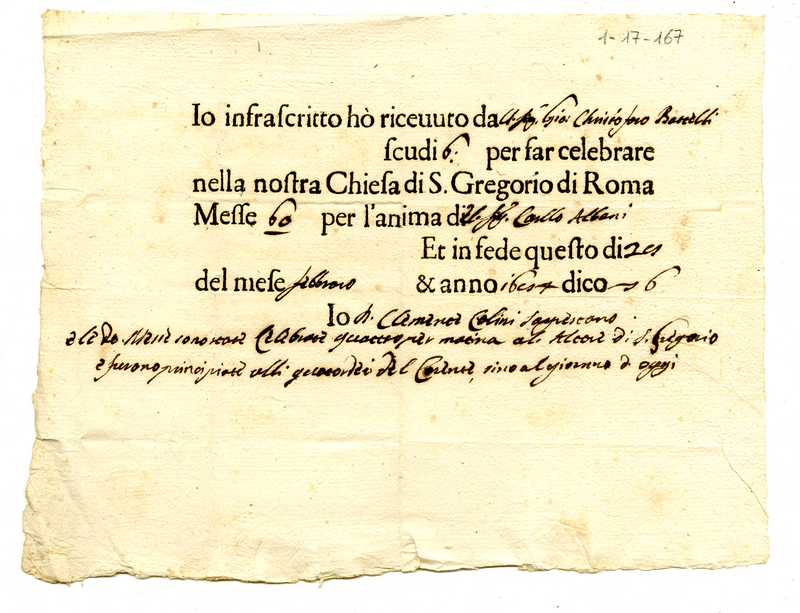 1-17-167
Io infraſcritto hò riceuuto da Christofaro Battelli
ſcudi 6: per far celebrare
nella noſtra Chieſa di S. Gregorio di Roma
Meſſe 60 per l'anima di Carllo Albani
Et in fede queſto di
del meſe febbraro & anno dico 6
Io D. Clemente Colini Sagrestano
e le do. Messe sono state Celebrate quattro per matina al Altare di S. Gregorio
e furono principiate alli quatordeci del Corente, sino al giorno d oggi